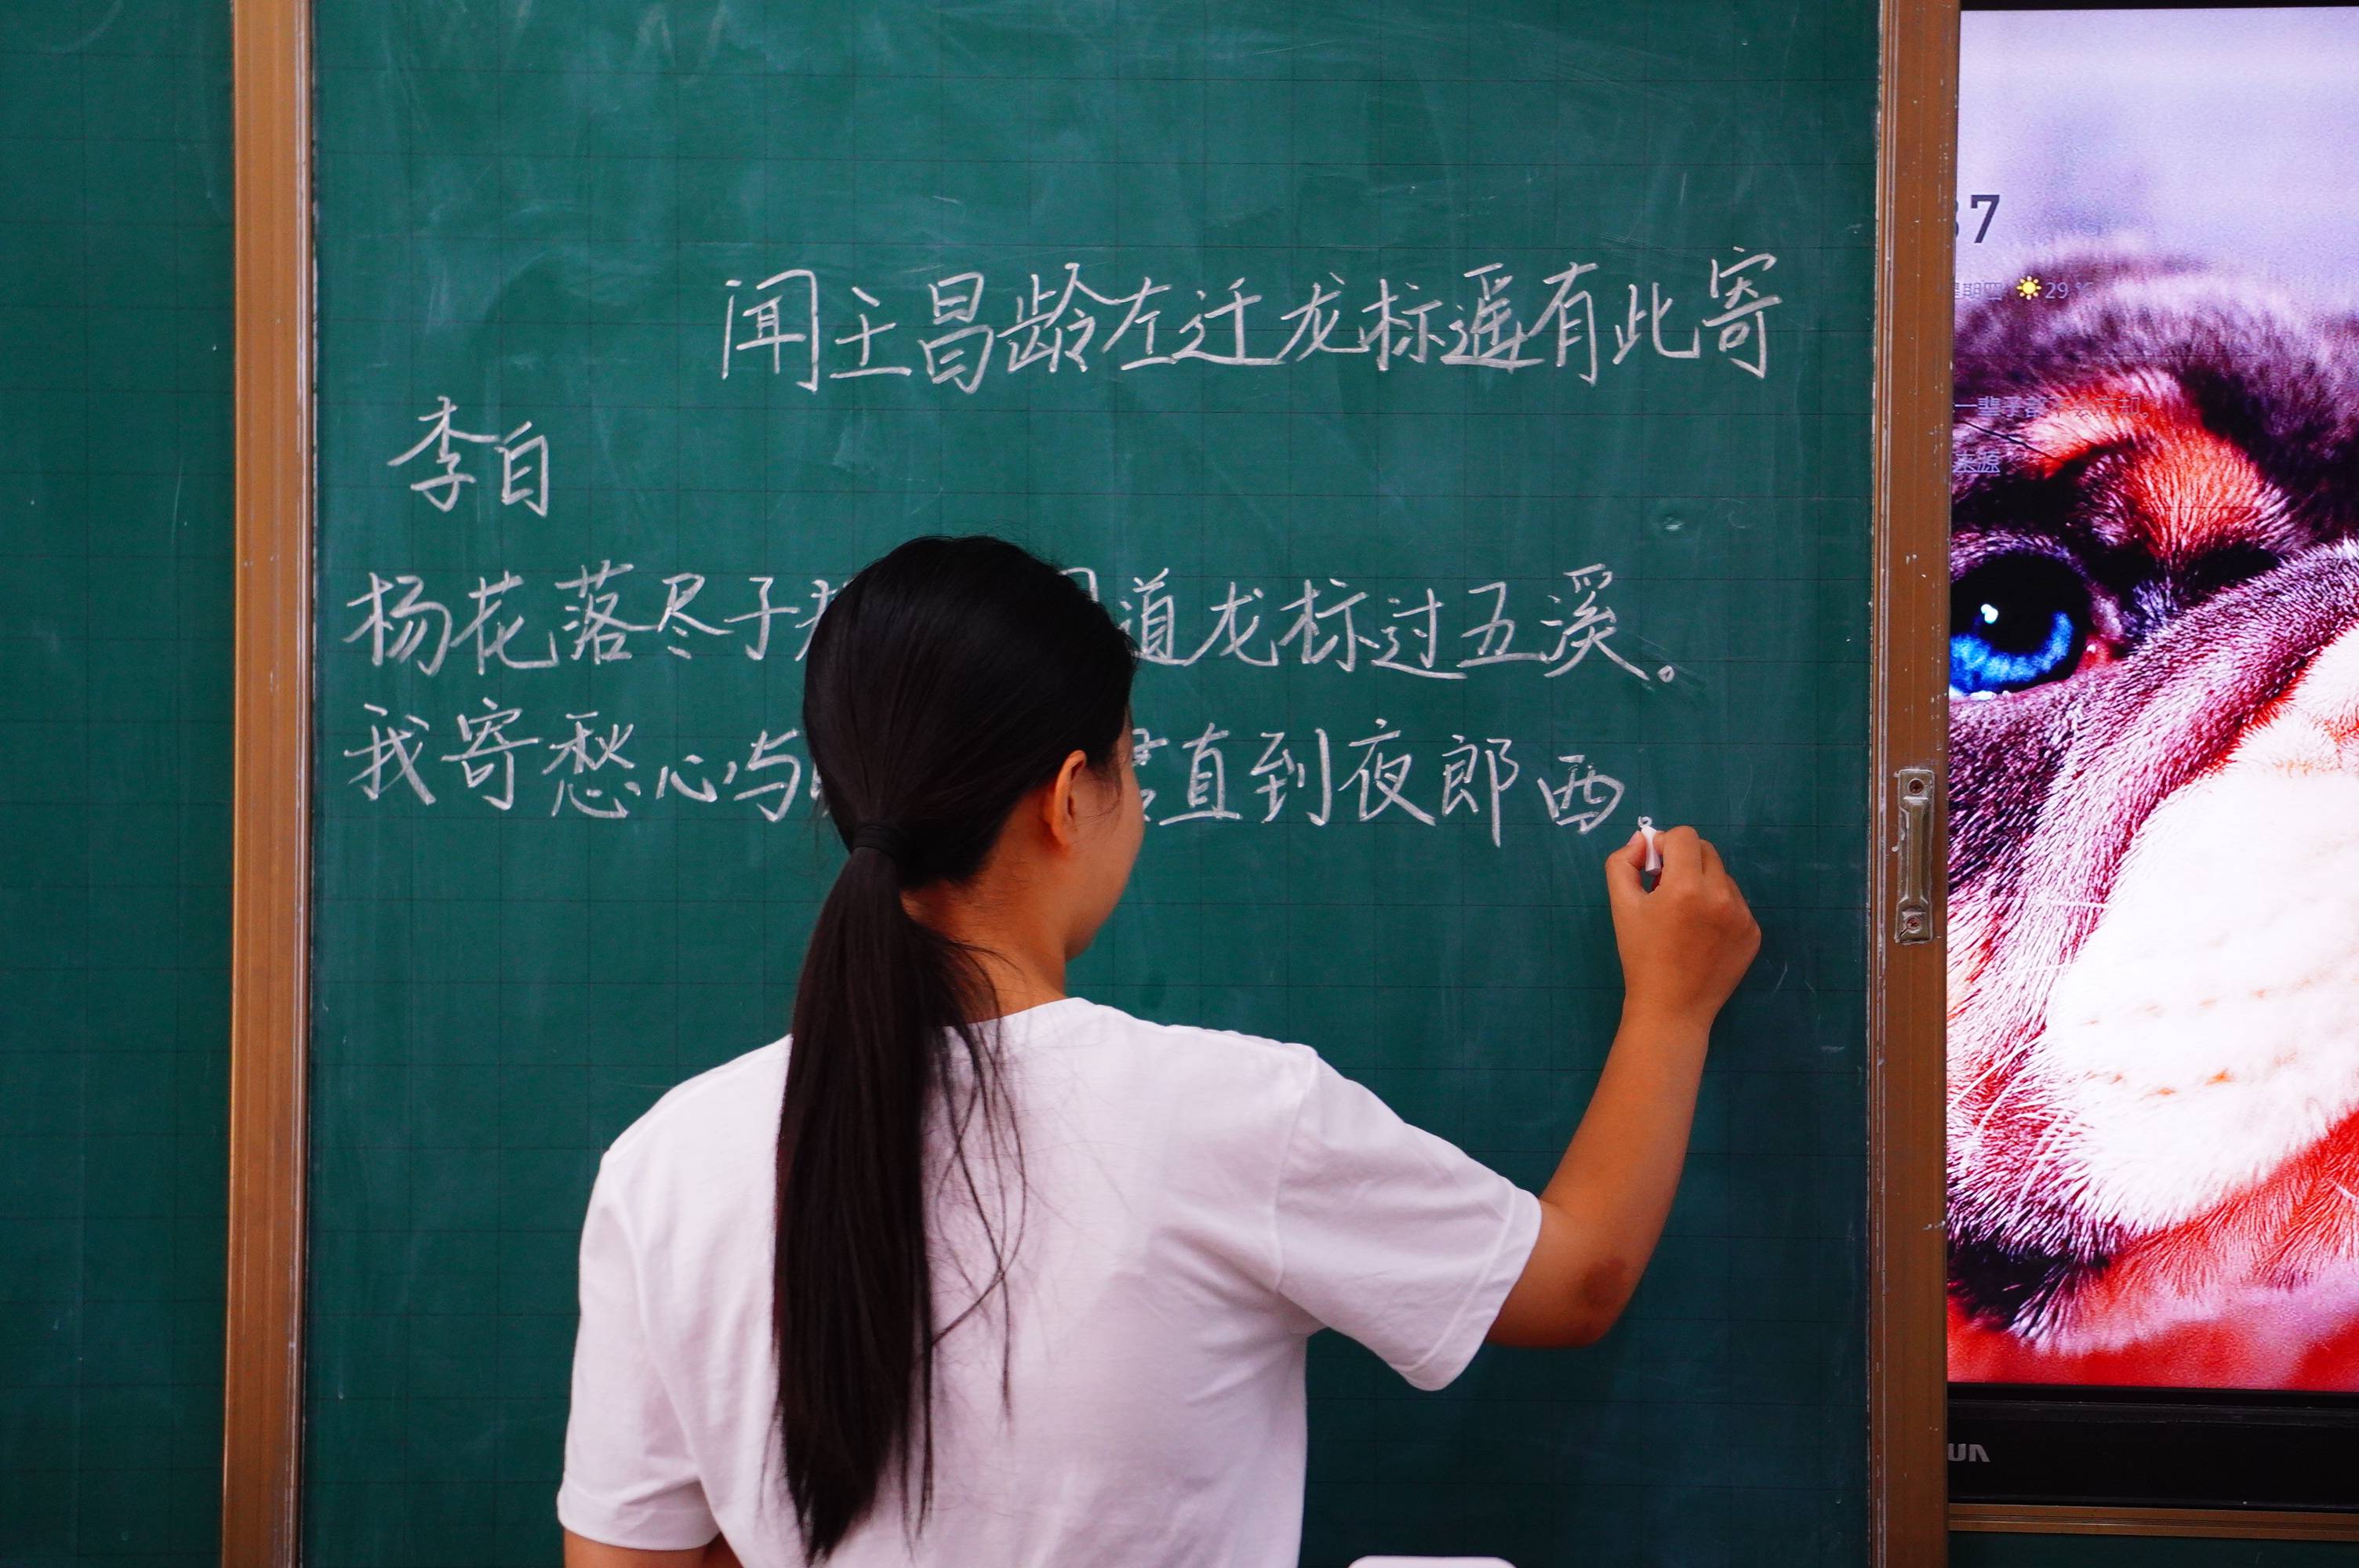 闻王昌龄左迁龙标遥有此寄
李白
杨花落尽子 道龙标过五溪。
我寄愁心与 直到夜郎西
7
星期四 29
一辈子
来源